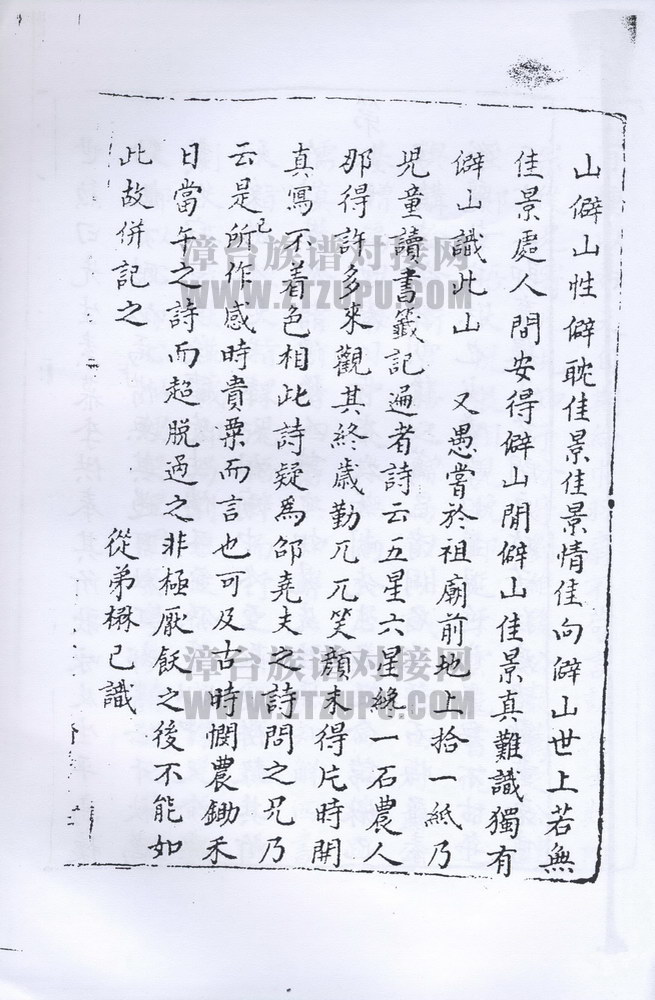 山僻山性僻耽佳景佳景情佳向僻山世上若無
佳景處人間安得僻山閒僻山佳景真難識獨有
僻山識此山 又愚嘗於祖廟前地上拾一紙乃
児童讀書籤記遍者詩云五星六星纔一石農人
那得許多來觀其終歲勤兀兀笑顏未得片時開
真寫不着色相此詩疑為邵堯夫之詩問之兄乃
云是己所作感時貴粟而言也可及古時憫農鋤禾
日當午之詩而超脫過之非極厭飫之後不能如
此故併記之
從弟楙己識
漳台族谱对接网
WWW.ZTZUPU.COM
漳台族谱对接网
WWW.ZTZUPU.COM